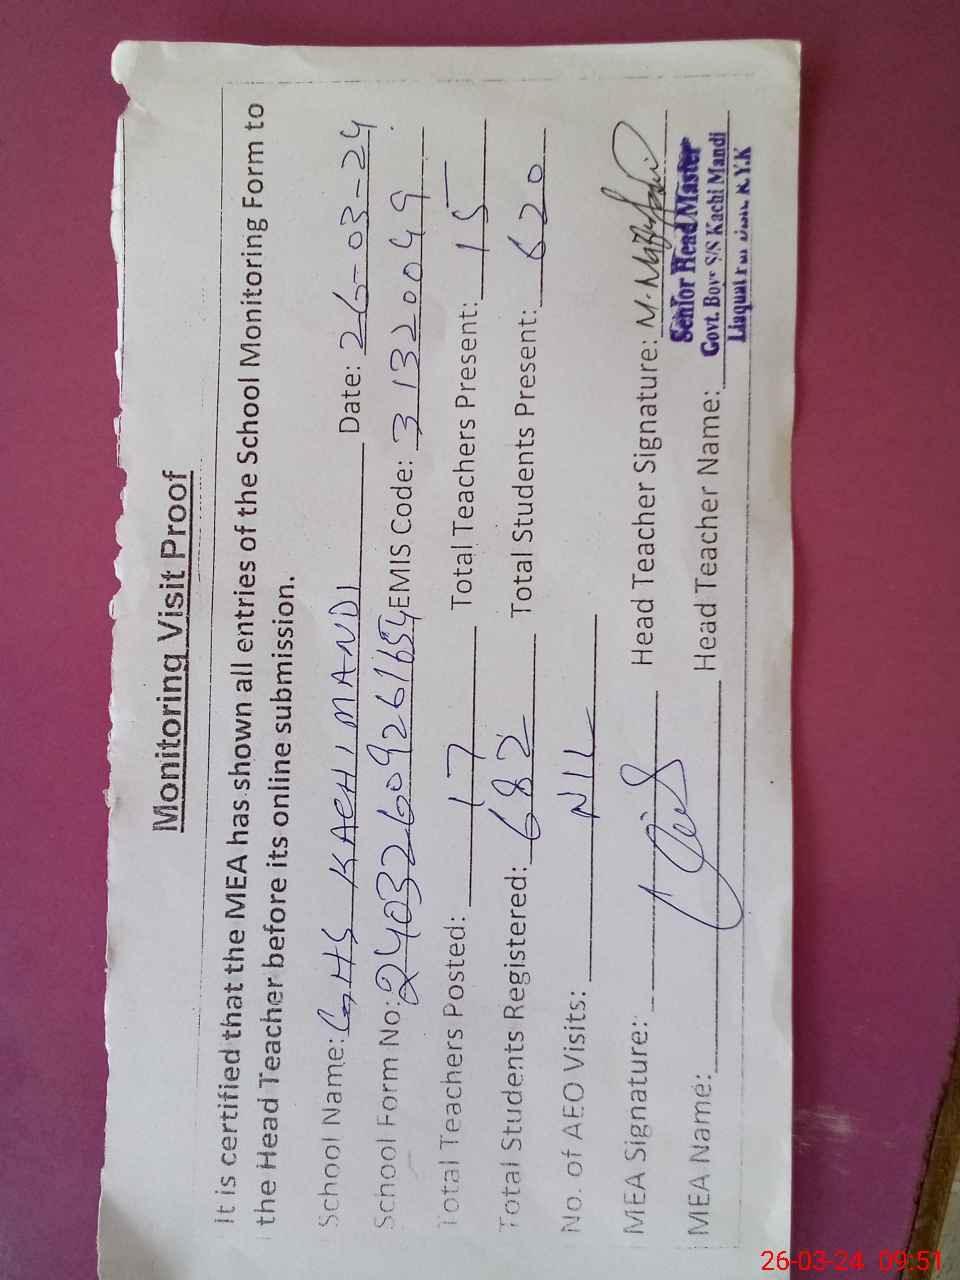 Monitoring Visit Proof
It is certified that the MEA has shown all entries of the School Monitoring Form to
the Head Teacher before its online submission.
School Name: GHS KACHI MANDI Date: 26-03-24
School Form No: 24032609261654 EMIS Code: 31320049
Total Teachers Posted: 17 Total Teachers Present: 15
Total Students Registered: 682 Total Students Present: 620
No. of AEO Visits: NIL
MEA Signature: Head Teacher Signature: M.
Senior Head Master
MEA Name: Head Teacher Name: Govt. Boys S/S Kachi Mandi
R.Y.K
26-03-24 09:51